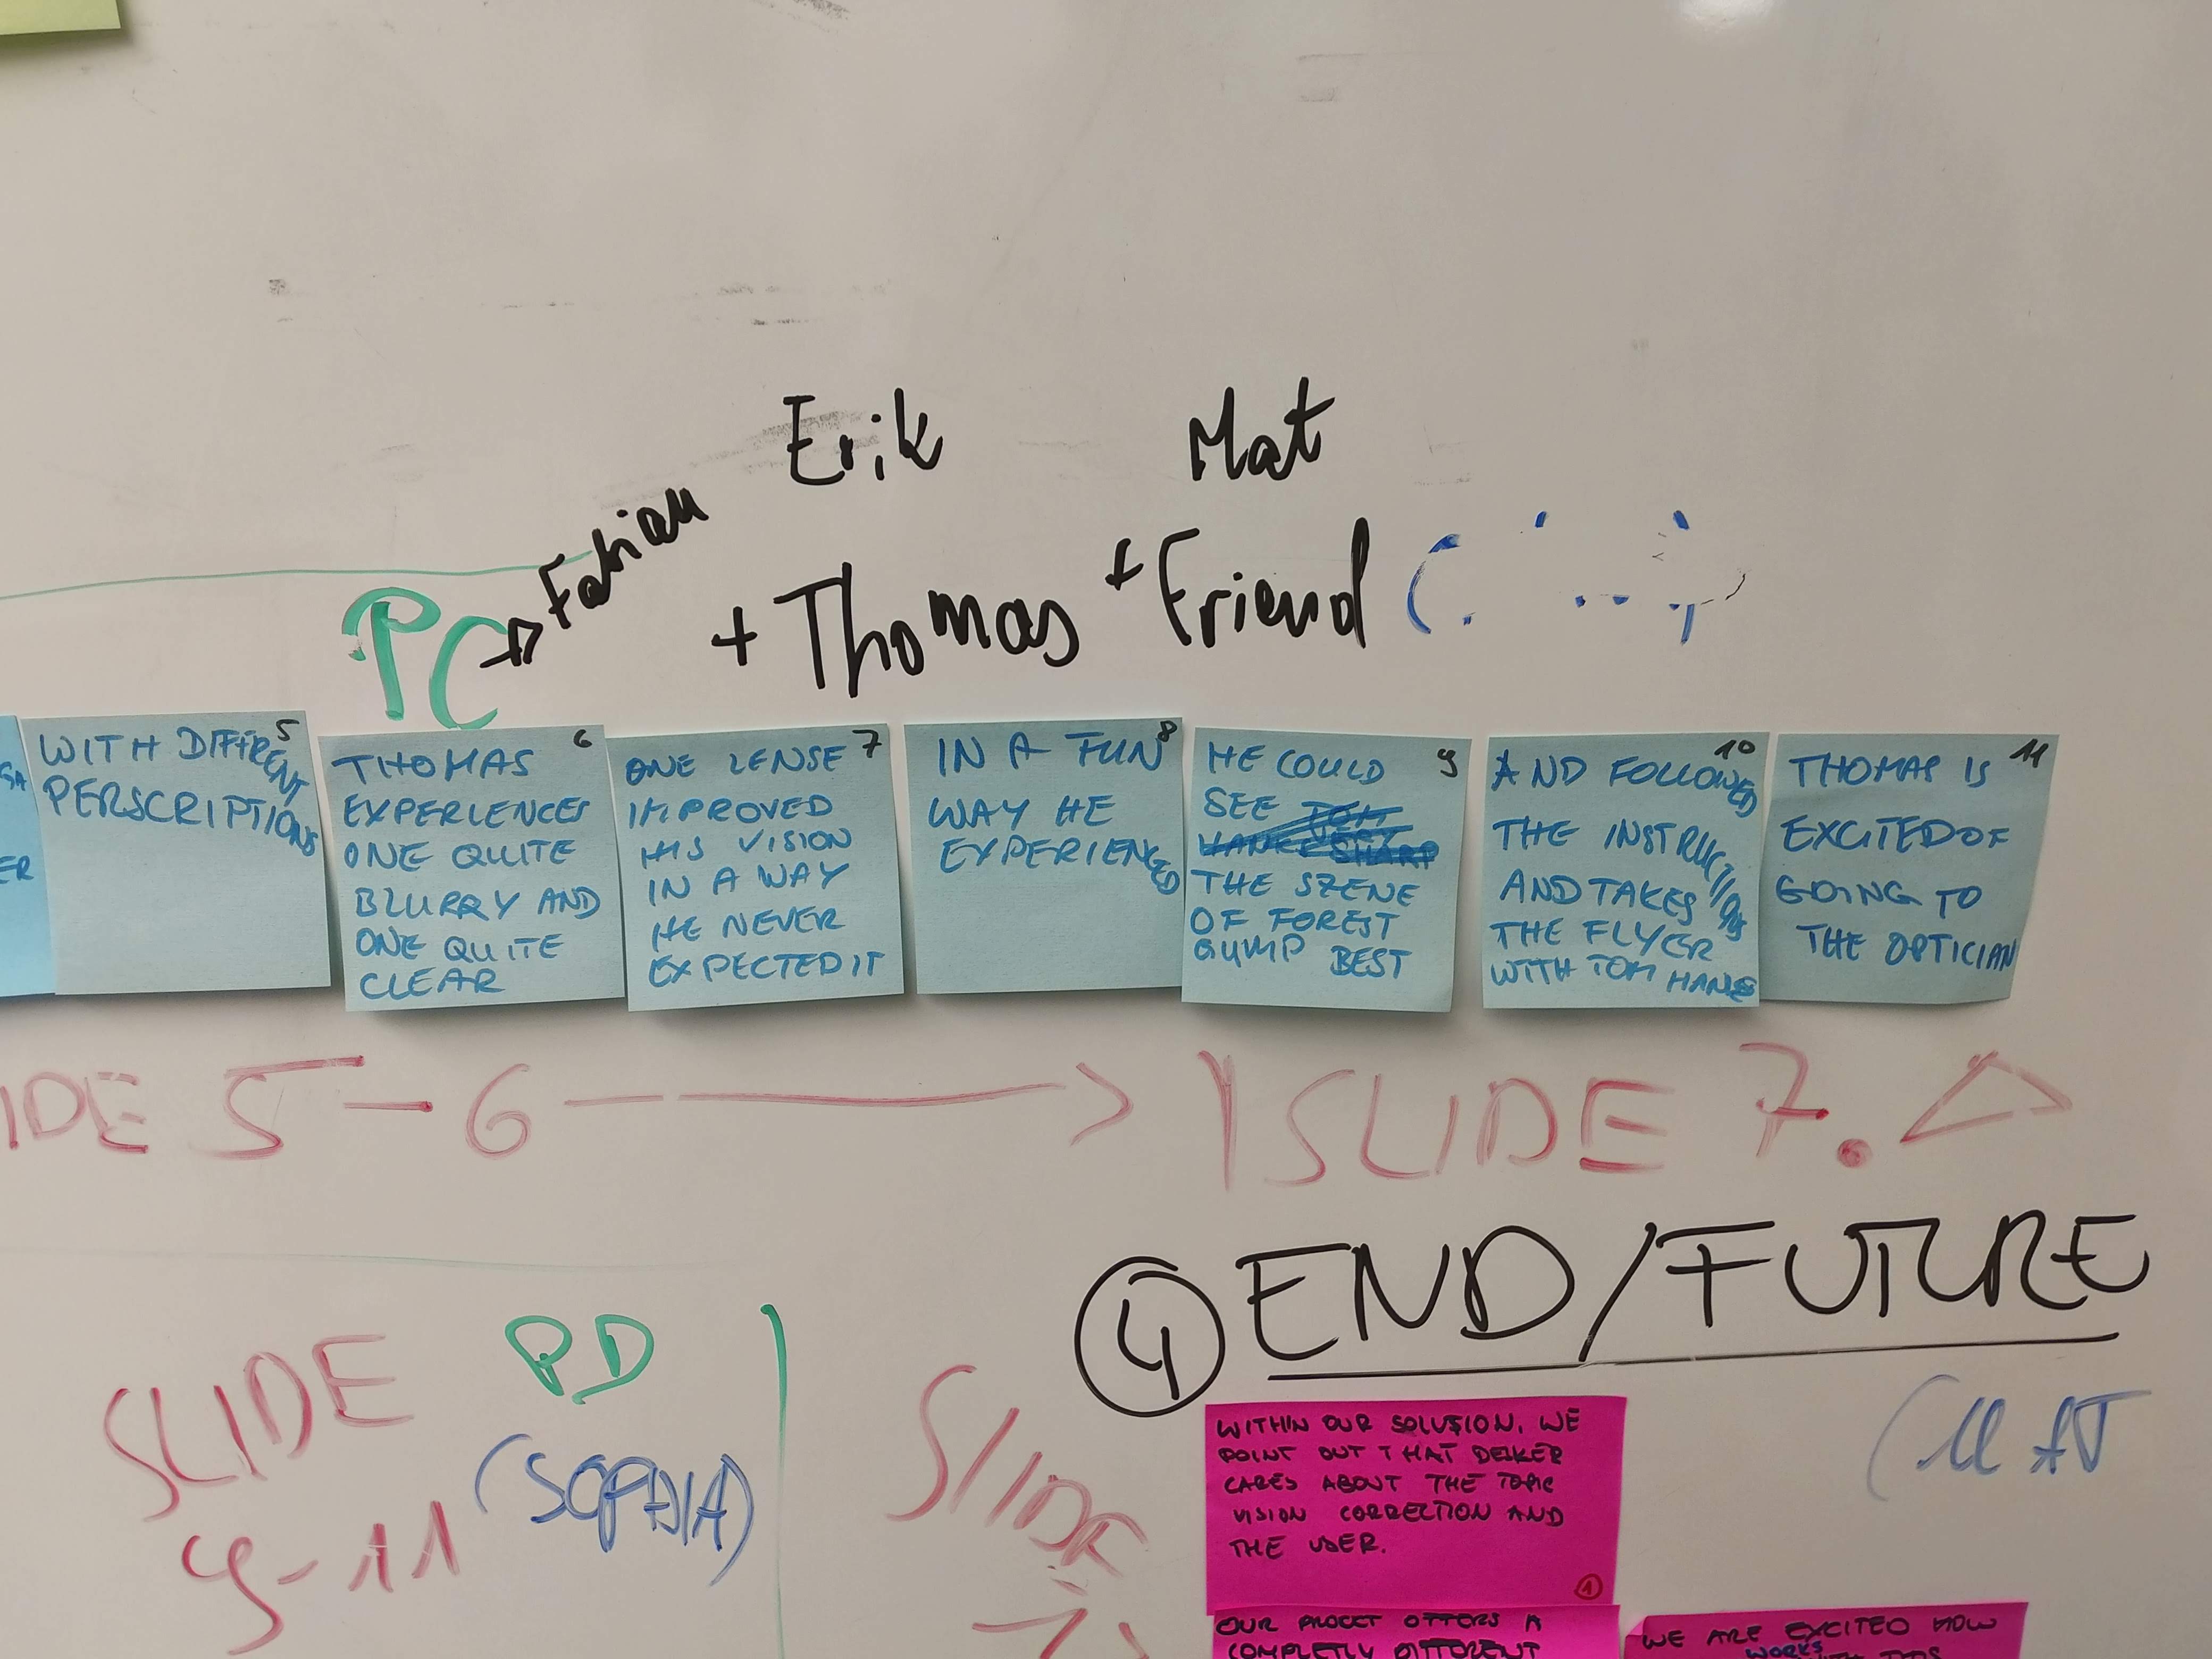 Erik
Mat
PC
Fabian
+ Thomas
+ Friend
GA
ER
5
WITH DIFFRENT
PERSCRIPTIONS
6
THOMAS
EXPERIENCES
ONE QUITE
BLURRY AND
ONE QUITE
CLEAR
7
ONE LENSE
IMPROVED
HIS VISION
IN A WAY
HE NEVER
EXPECTED IT
8
IN A FUN
WAY HE
EXPERIENCED
9
HE COULD
SEE TOM
HANKS VERY SHARP
THE SZENE
OF FOREST
GUMP BEST
10
AND FOLLOWED
THE INSTRUCTIONS
AND TAKES
THE FLYER
WITH TOM HANKS
11
THOMAS IS
EXCITED OF
GOING TO
THE OPTICIAN
IDE 5-6
SLIDE 7.
4 END/FUTURE
SLIDE
9-11
PD
(SOPHIA)
SLIDE
(MAT
WITHIN OUR SOLUTION, WE
POINT OUT THAT
CARES ABOUT THE TOPIC
VISION CORRECTION AND
THE USER.
1
OUR OFFERS A
COMPLETLY DIFFERENT
WE ARE EXCITED HOW
WORKS